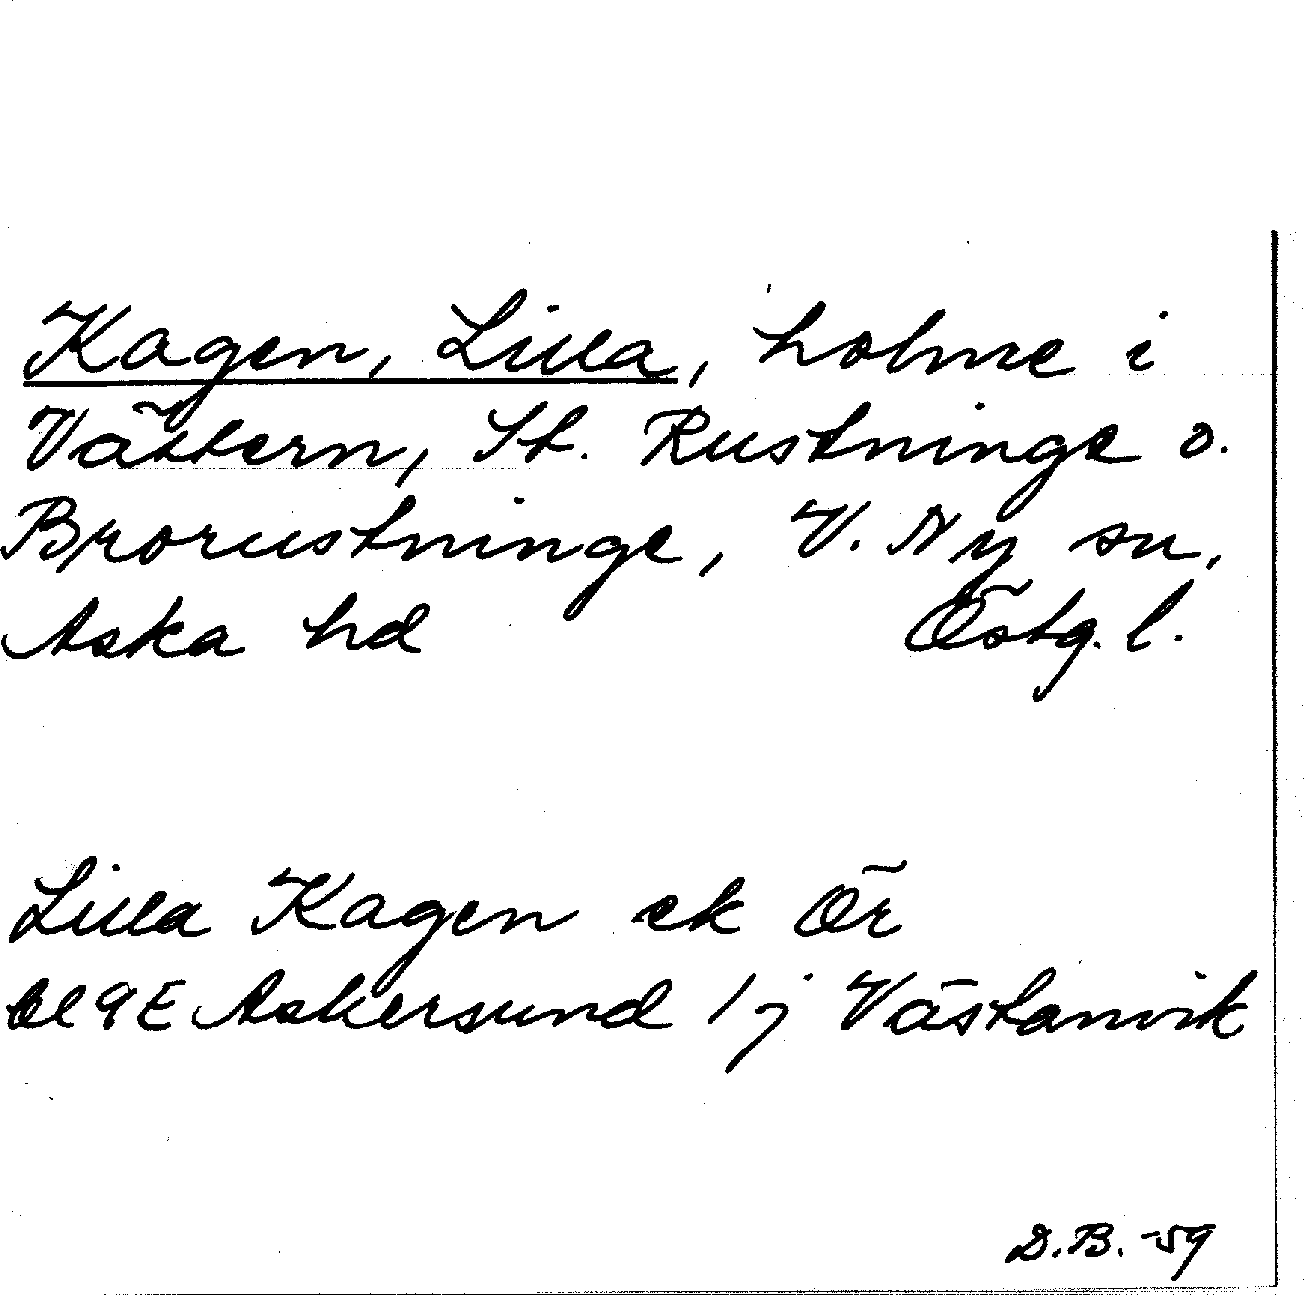 Kagen, Lilla, holme i
Vättern, St. Rustninge o.
Brorustninge, V. Ny sn,
Aska hd Östg. l.
Lilla Kagen ek Ör
bl 9E Askersund 1j Västanvik
D.B. -59